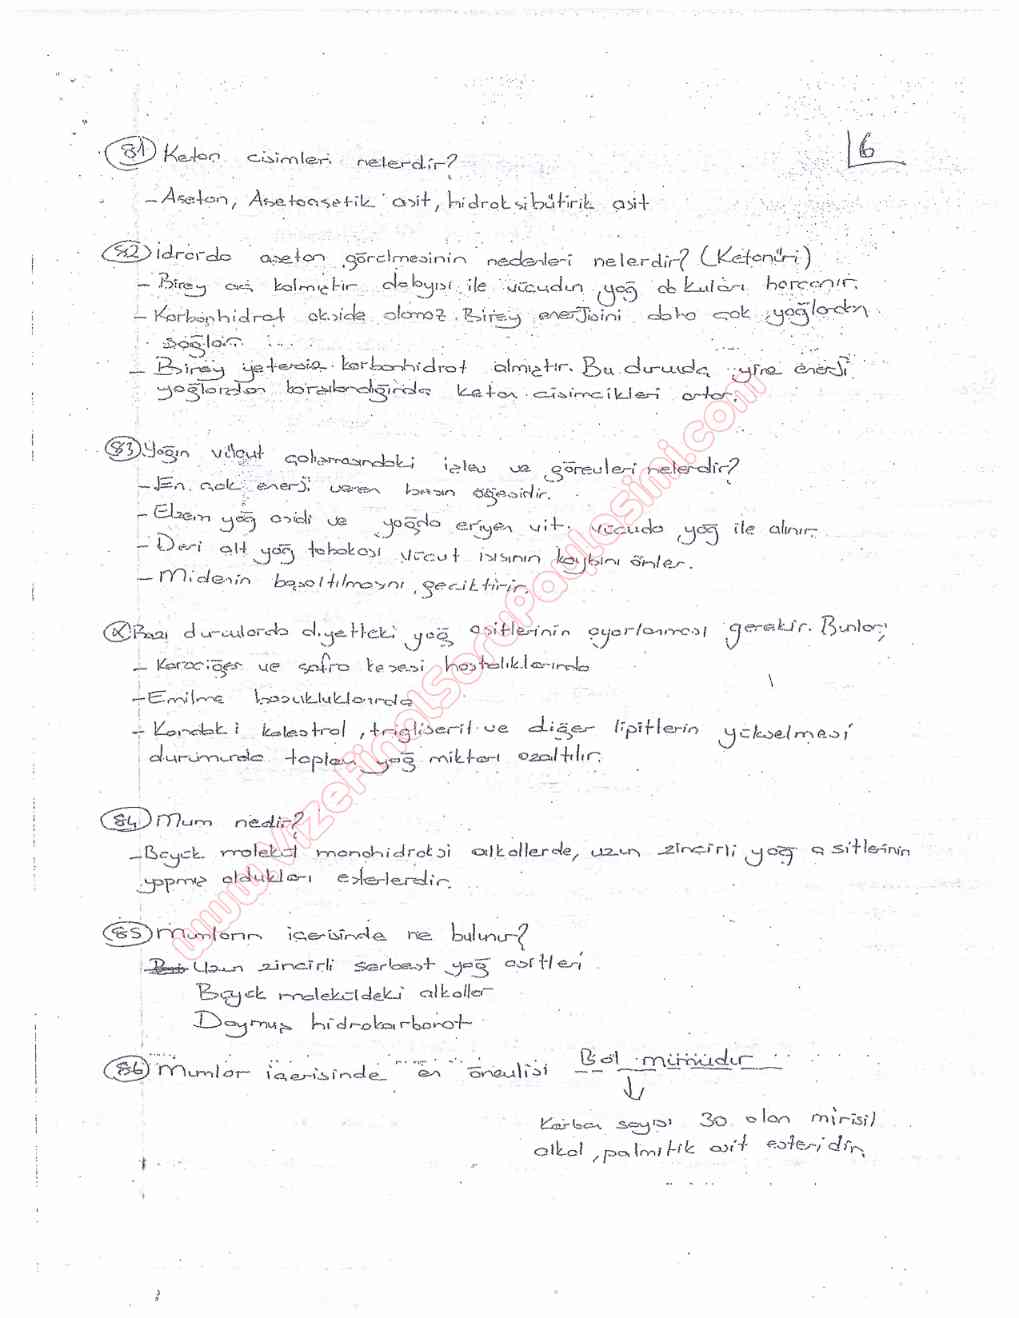 16
81 Keton cisimleri nelerdir?
- Aseton, Asetoasetik asit, hidroksibütirik asit
82 İdrarda aseton görülmesinin nedenleri nelerdir? (Ketonüri)
- Birey aç kalmıştır dolayısı ile vücudun yağ dokuları harcanır.
- Karbonhidrat okside olamaz. Birey enerjisini daha çok yağlardan
sağlar.
- Birey yetersiz karbonhidrat almıştır. Bu durumda yine enerji
yağlardan karşılandığında keton cisimcikleri artar.
83 Yağın vücut çalışmasındaki işlev ve görevleri nelerdir?
- En çok enerji veren besin öğesidir.
- Elzem yağ asidi ve yağda eriyen vit. vücuda yağ ile alınır.
- Deri alt yağ tabakası vücut ısısının kaybını önler.
- Midenin boşaltılmasını geciktirir.
* Bazı durumlarda diyetteki yağ asitlerinin ayarlanması gerekir. Bunlar;
- Karaciğer ve safra kesesi hastalıklarında
- Emilme bozukluklarında
- Kandaki kolestrol, trigliserit ve diğer lipitlerin yükselmesi
durumunda toplam yağ miktarı azaltılır.
84 Mum nedir?
- Büyük molekül monohidroksi alkollerde, uzun zincirli yağ asitlerinin
yapmış oldukları esterlerdir.
85 Mumların içerisinde ne bulunur?
Uzun zincirli serbest yağ asitleri
Büyük moleküldeki alkoller
Doymuş hidrokarborat
86 Mumlar içerisinde en önemlisi Bal mumudur
↓
Karbon sayısı 30 olan mirisil
alkol, palmitik asit esteridir.
www.VizeFinalSoruPaylasimi.com